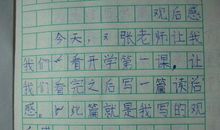 观后感
今天，张老师让我
们看开学第一课，让
我们看完之后写一篇读后
感。此篇就是我写的观